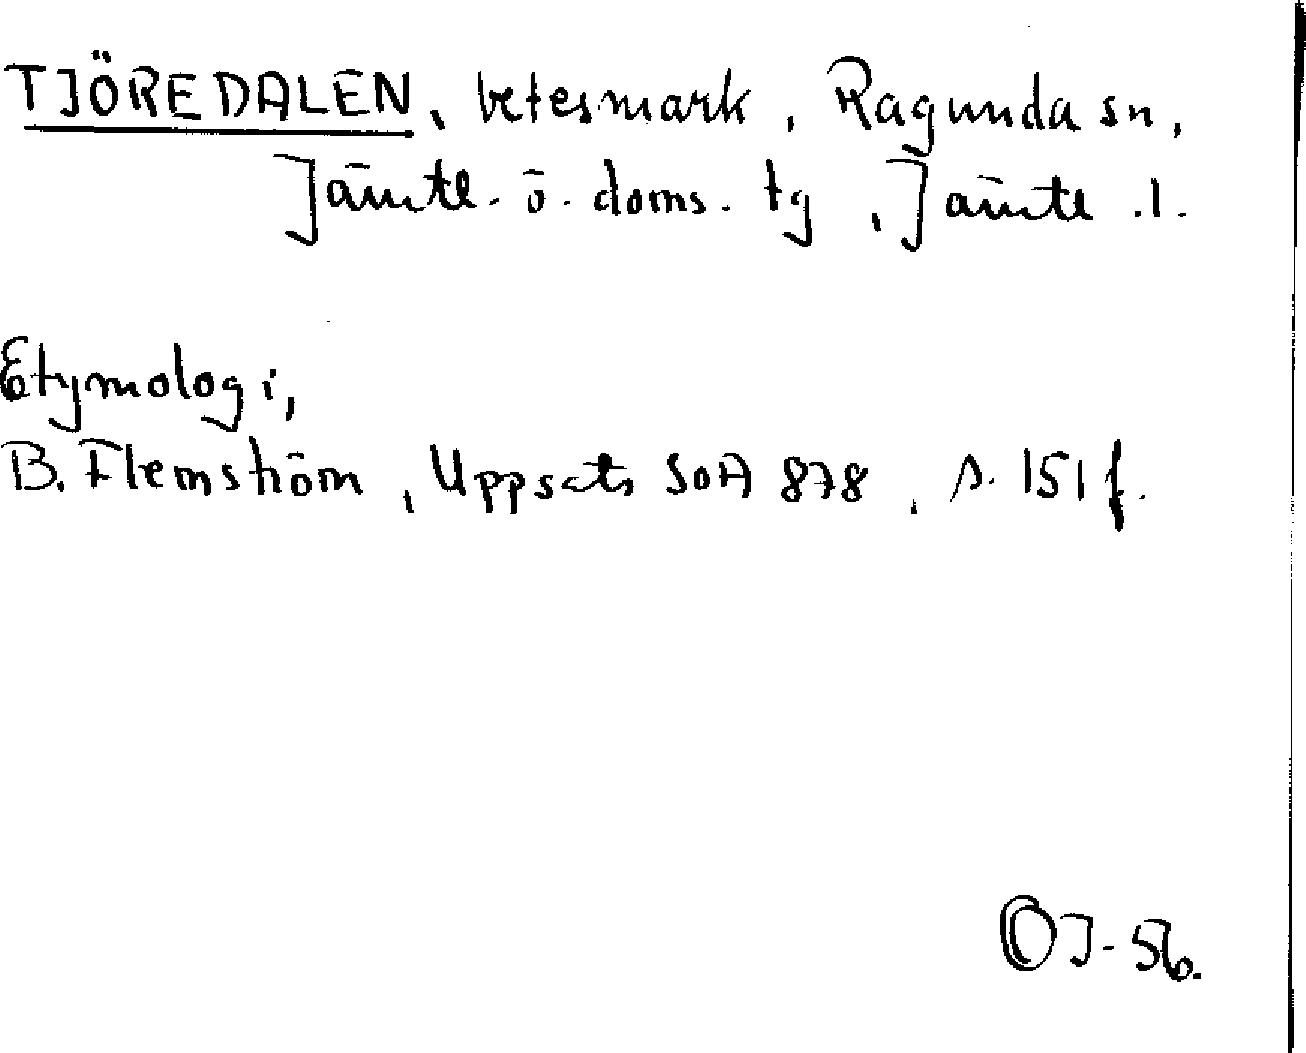 TJÖREDALEN, betesmark, Ragunda sn,
Jämtl. ö. doms. tg, Jämtl. l.
Etymologi,
B. Flemström, Uppsats SOA 878, s. 151 f.
OJ-56.